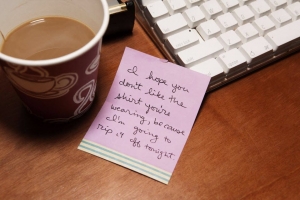 I hope you
don't like the
shirt you're
wearing, because
I'm going to
rip it off tonight